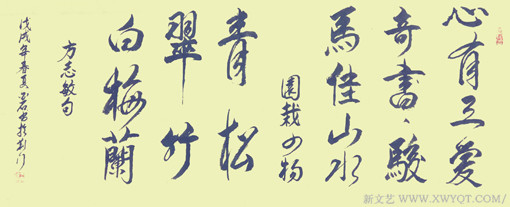 心有三愛
奇書駿
馬佳山水
園栽四物
青松
翠竹
白梅蘭
方志敏句
戊戌年春
新文艺 WWW.XWYQT.COM